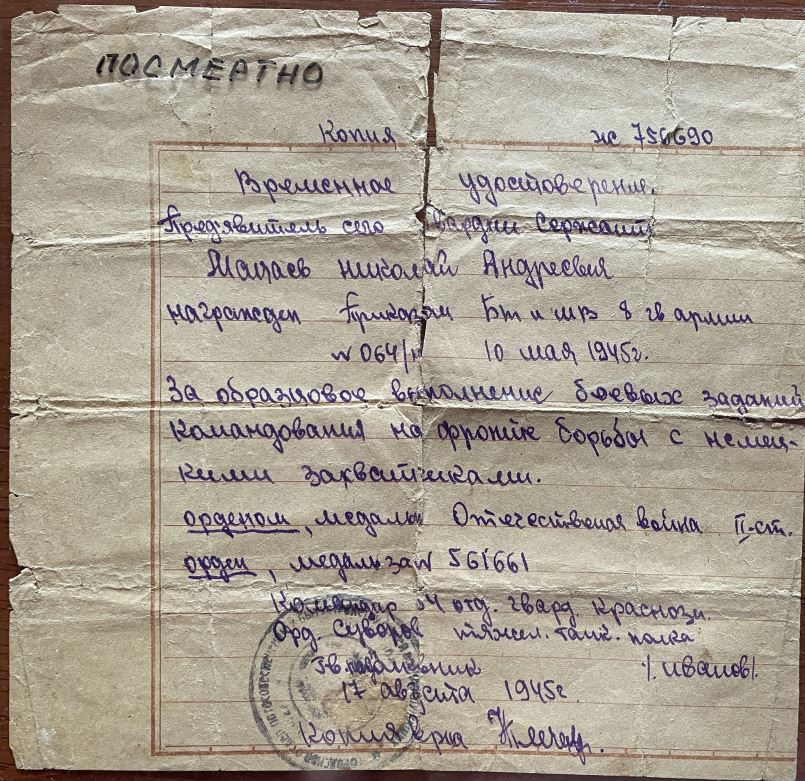 ПОСМЕРТНО
Копия жс 756690
Временное удостоверение.
Предъявитель сего Гвардии Сержант
Николай Андреевич
награжден Приказом Бт и МВ 8 гв армии
N 064/н 10 мая 1945г.
За образцовое выполнение боевых заданий
командования на фронте борьбы с немец-
кими захватчиками.
орденом, медалью Отечественая война II-ст.
орден, медаль за N 561661
Командир отд. гвард. Краснозн.
Орд. Суворов тяжел. танк. полка
Гв подполковник /Иванов/.
17 августа 1945г
Копия верна